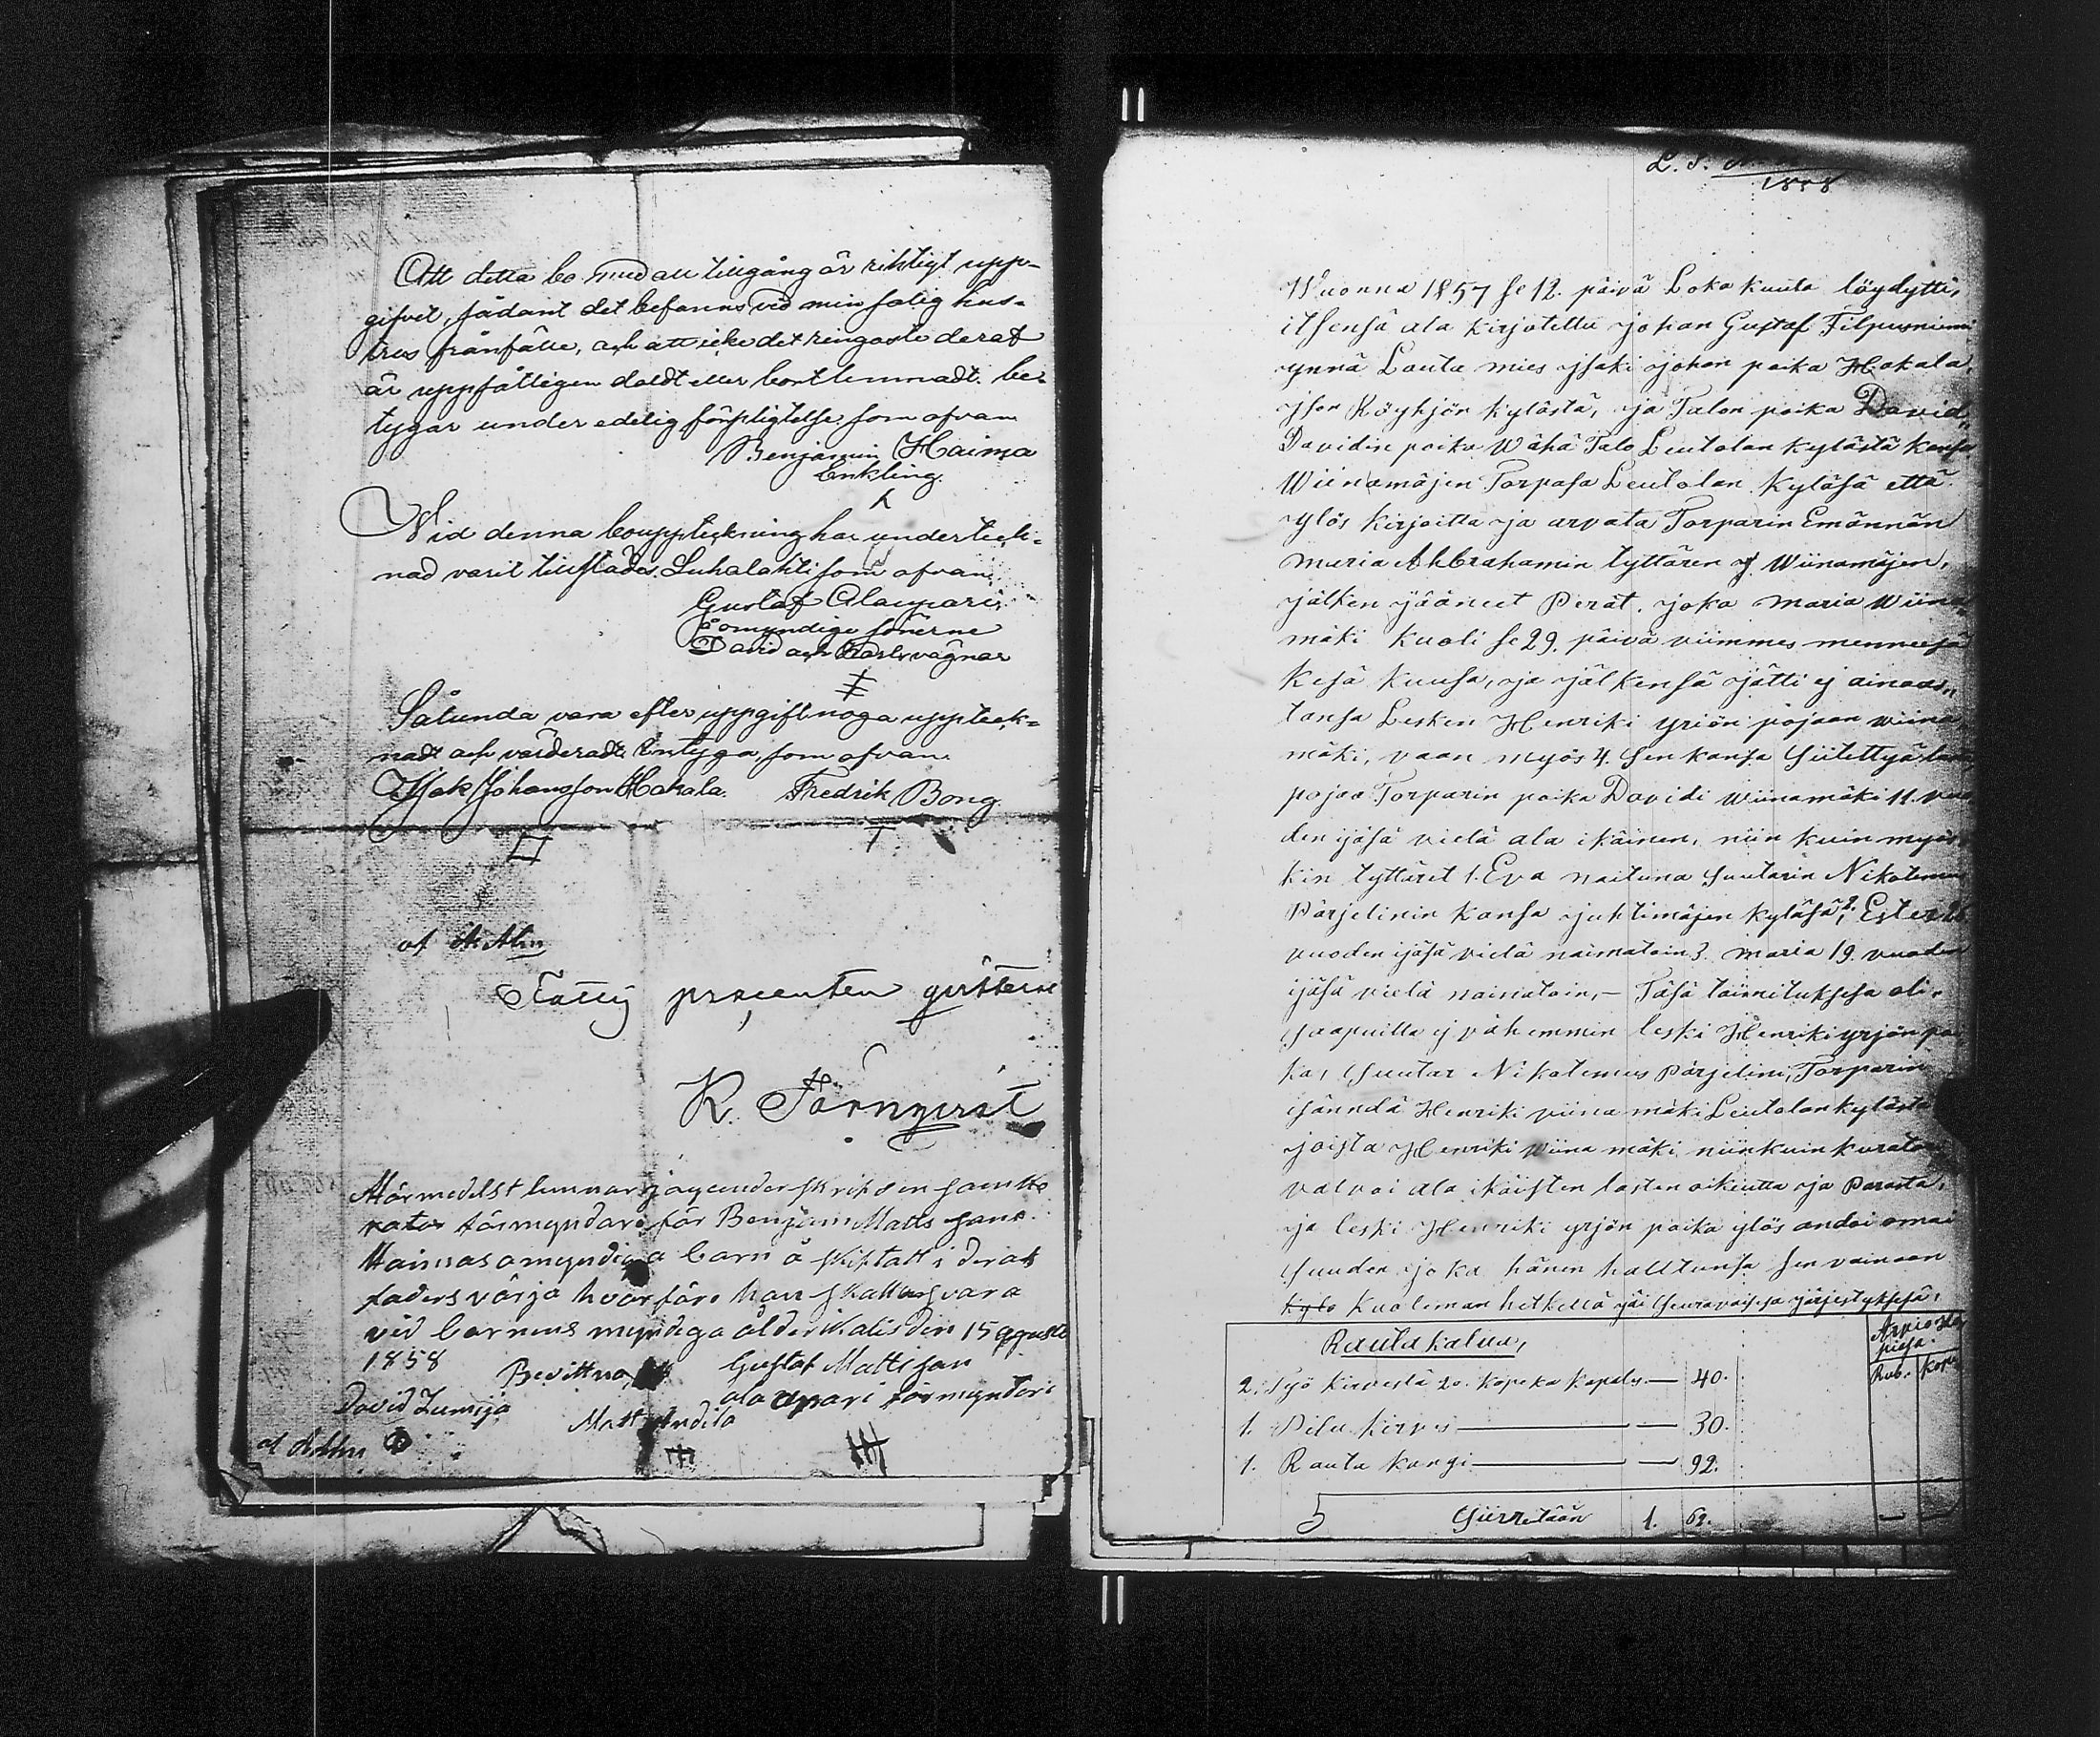 Att detta bo med all tillgång är riktigt upp-
gifvet, sådant det befanns vid min salig hus-
trus frånfälle, och att icke det ringaste deraf
är uppsåtligen doldt eller bortlemnadt, be-
tygar under edelig förpligtelse som ofvan
Benjamin Haima
Enkling.
Vid denna bouppteckning har underteck-
nad varit tillstädes. Luhalahti som ofvan.
Gustaf Alaspari
omyndige sönerne
David och Karls vägnar
Sålunda vara efter uppgift noga uppteck-
nadt och värderadt bintyga, som ofvan.
Isak Johansson Hakala. Fredrik Bong
af A. Ahn
Fattig procenten gutterne
K. Törnqvist
Härmedelst lemnar jag underskrifven som
rator förmyndare för Benjam Matts sons
Haimas omyndiga barn å skiftatt i deras
faders värja hvarföre han skall ansvara
vid barnens myndiga ålder Ikalis den 15 agusti
1858 Bevittna Gustaf Matts son
David Lumija ala apari förmyndere
Matt Andila
L. S.
1858
Wuonna 1857 se 12. päivä Loka kuuta löydytti,
itsensä ala kirjotettu Johan Gustaf Filpusniemi
ynnä Lauta mies Isaki Johan poika Hakala,
Ison Röyhjön kylästä, ja Talon poika David,,
Davidin poika Wähä Talo Leutolan kylästä kansa
Wiinamäjen Torpasa Leutolan kyläsä että
ylös kirjoitta ja arvata Torparin Emännän
Maria Ahbrahamin tyttären Wiinamäjen,
jälken jääneet Perät, joka Maria Wiina
mäki kuoli se 29. päivä viimmes menneesä
Kesä kuusa, ja jälkensä jätti ej ainoas,,
tansa Lesken Henriki yriön pojaan wiina
mäki, vaan myös 4. sen kansa siitettyä
pojaa Torparin poika Davidi Wiinamäki 11.
den ijäsä vielä ala ikäinen, niin kuin myös
kin tyttäret 1. Eva naituna suutarin Nikotemu
Pärjelinin kansa juhtimäjen kyläsä, 2. Ester
vuoden ijäsä vielä naimatoin 3. Maria 19. vuoden
ijäsä vielä naimatoin, — Täsä toimituksesa oli
saapuilla ej vähemmin leski Henriki yrjön poi
ka, Suutar Nikotemus Pärjelini, Torparin
isänndä Henriki viina mäki Leutolan kylästä
joista Henriki Wiina mäki niinkuin kurato
valvoi ala ikäisten lasten oikeutta ja Parasta,
ja leski Henriki yrjön poika ylös andoi omai
suuden joka hänen halltunsa sen vainaan
kyle Kuoleman hetkellä jäi seuravaisesa järjestyksesä,
Rauta kalua, Arpio
Rub. kope
2. Työ kirvestä 20. kopeka kapaly — 40.
1. Pilu kirves — 30.
1. Rauta kangi — 92.
5 Siirretään 1. 62. — —